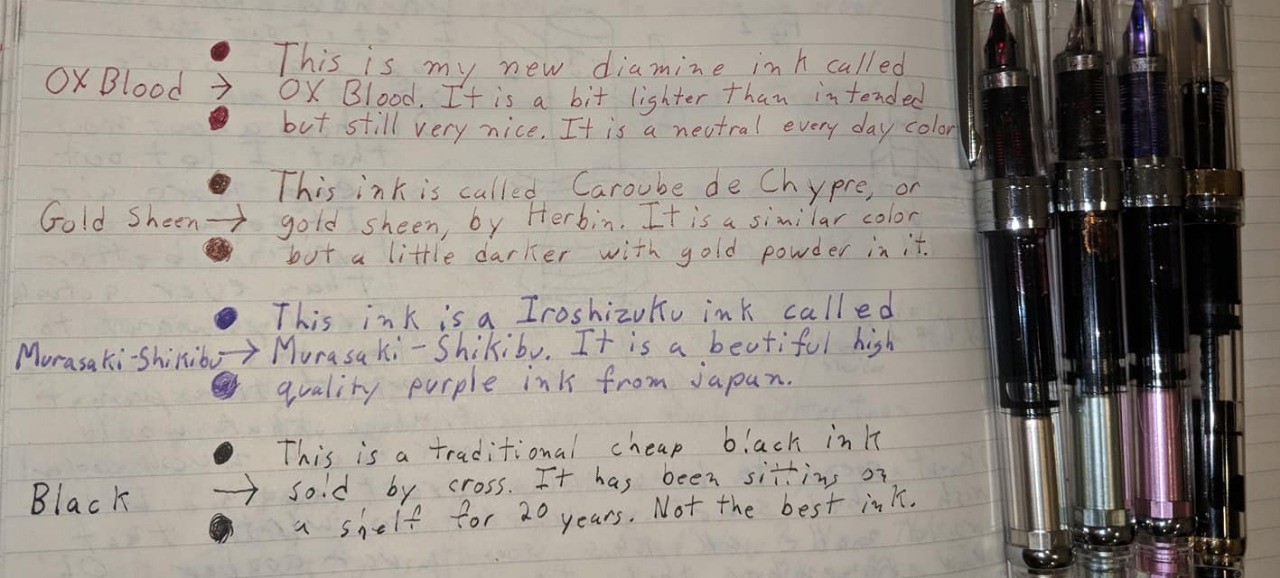 This is my new diamine ink called
OX Blood → OX Blood. It is a bit lighter than intended
but still very nice. It is a neutral every day color
This ink is called Caroube de Chypre, or
Gold Sheen → gold sheen, by Herbin. It is a similar color
but a little darker with gold powder in it.
This ink is a Iroshizuku ink called
Murasaki-Shikibu → Murasaki-Shikibu. It is a beutiful high
quality purple ink from japan.
This is a traditional cheap black ink
Black → sold by cross. It has been sitting on
a shelf for 20 years. Not the best ink.